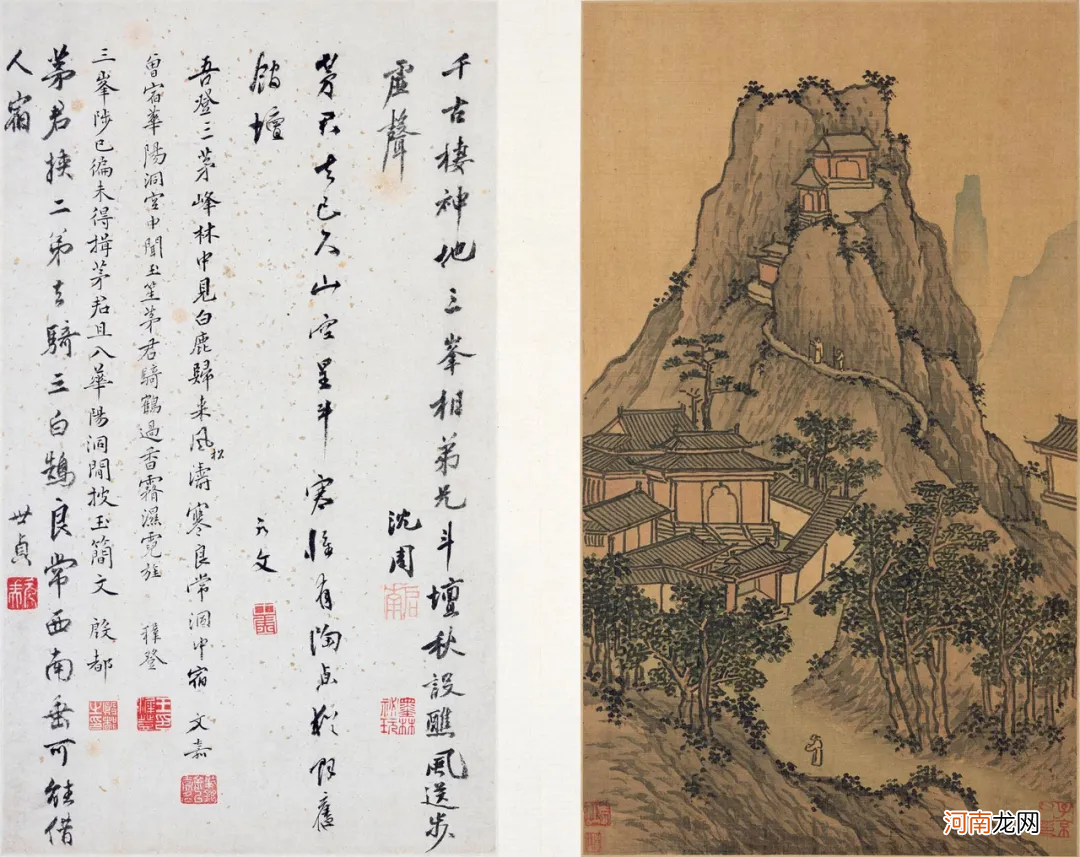 千古棲神地三峯相弟兄斗壇秋設醮風送步
虛聲 沈周
茅君去已久山空星斗寒惟有陶舊
壇 文
吾登三茅峰林中見白鹿歸来松風濤寒良常洞中宿 文嘉
曾宿華陽洞宮中聞玉笙茅君騎鶴過香霧濕霓旌 穉登
三峯陟已徧未得揖茅君且入華陽洞閒披玉簡文 殷都
茅君挾二弟去騎三白鵠良常西南垂可能借
人宿 世貞
河南龙网